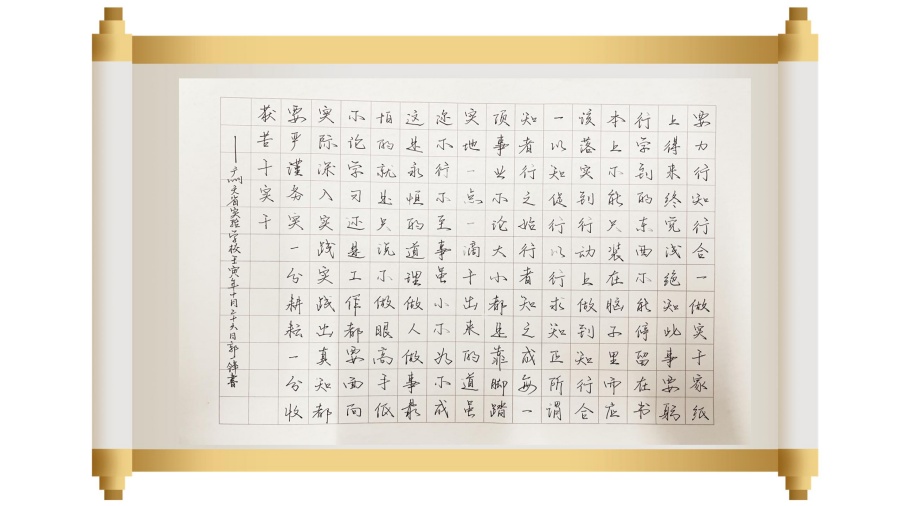 要力行知行合一做实干家纸
上得来终觉浅绝知此事要躬
行学到的东西不能停留在书
本上不能只装在脑子里而应
该落实到行动上做到知行合
一以知促行以行求知正所谓
知者行之始行者知之成每一
项事业不论大小都是靠脚踏
实地一点一滴干出来的道虽
迩不行不至事虽小不为不成
这是永恒的道理做人做事最
怕的就是只说不做眼高手低
不论学习还是工作都要面向
实际深入实践实践出真知都
要严谨务实一分耕耘一分收
获苦干实干
——省实验学校壬寅年十月二十六日郭